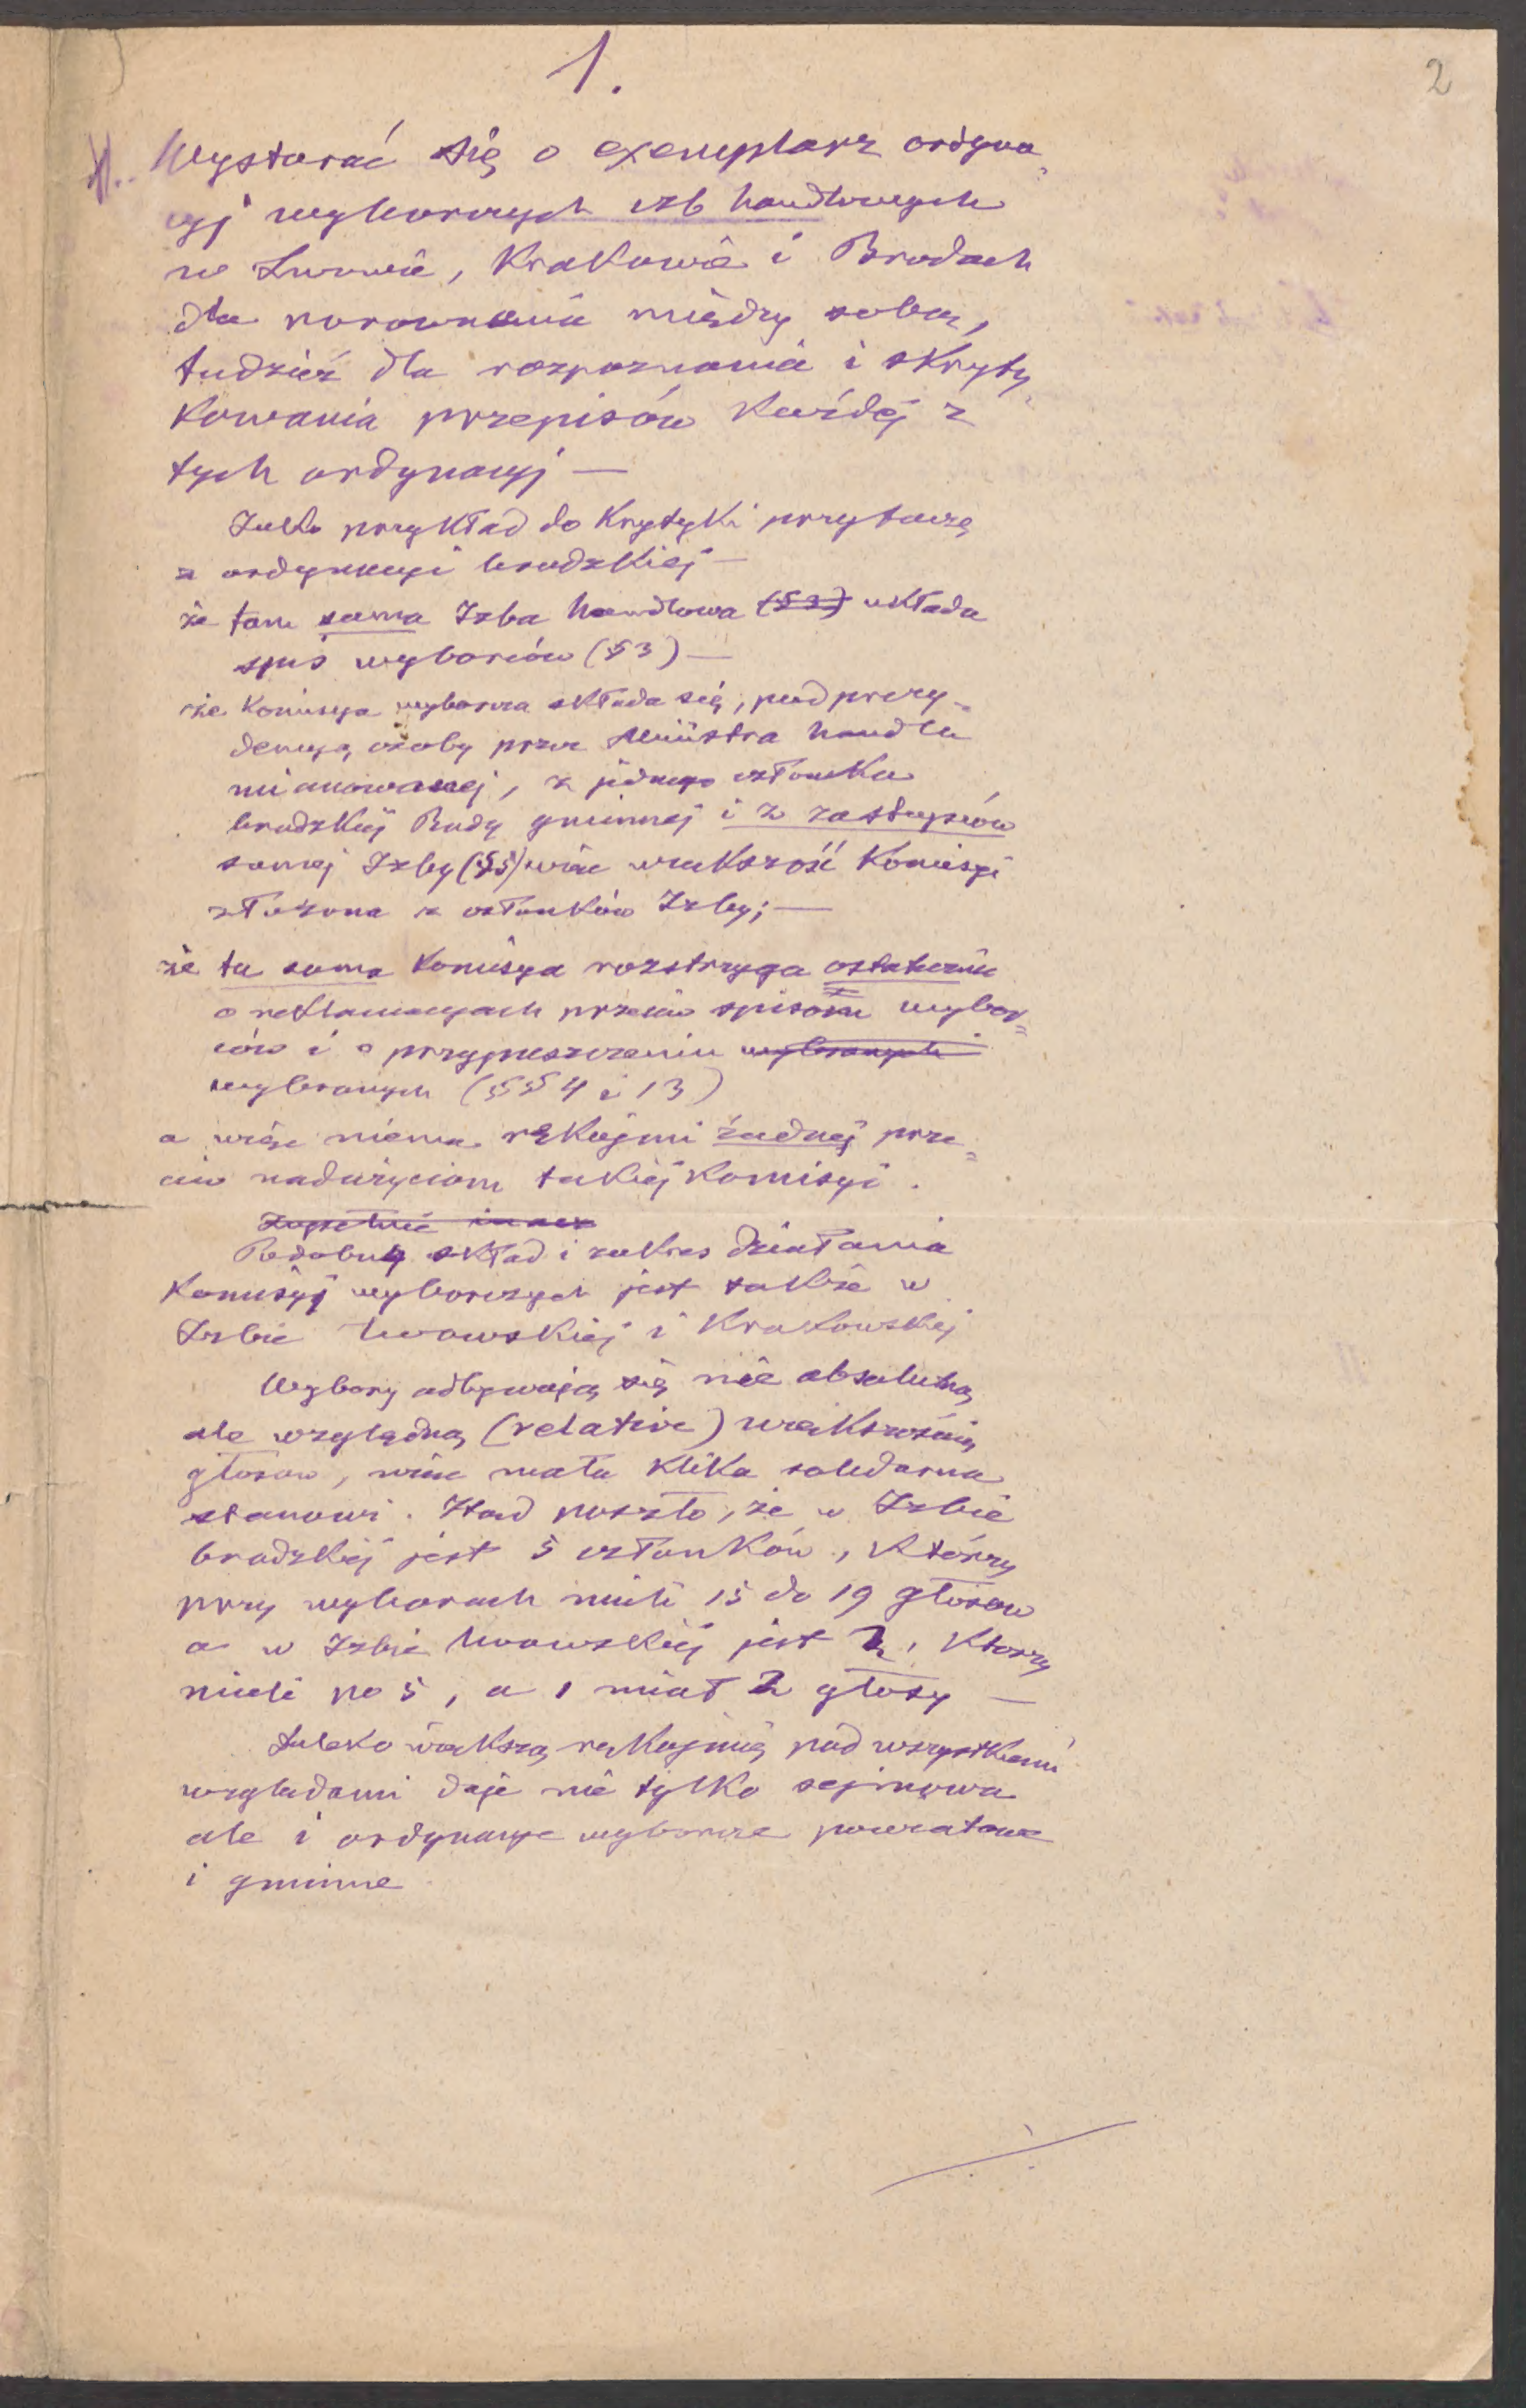 1.
2
Wystarać się o exemplarz ordyna-
cyj wyborczych izb handlowych
we Lwowie, Krakowie i Brodach
dla porownania między sobą,
tudzież dla rozpoznania i skryty-
kowania przepisów każdej z
tych ordynacyj —
Jako przykład do krytyki przytaczę
z ordynacyi brodzkiej —
że tam sama Izba handlowa (§3) układa
spis wyborców (§3) —
że komisya wyborcza składa się, pod prezy-
dencyą osoby przez Ministra handlu
mianowanej, z jednego członka
brodzkiej Rady gminnej i 2 zastępców
samej Izby (§5) więc większość komisyi
złożona z członków Izby; —
że ta sama komisya rozstrzyga ostatecznie
o reklamacyach przeciw spisom wybor-
ców i o przypuszczeniu wybranych
wybranych (§§ 4 i 13)
a więc niema rękojmi żadnej prze-
ciw nadużyciom takiej komisyi.
Zupełnie inaez
Podobny skład i zakres działania
komisyj wyborczych jest także w
Izbie lwowskiej i krakowskiej
Wybory odbywają się nie absolutną
ale względną (relative) większością
głosow, więc mała klika solidarna
stanowi. Ztąd poszło, że w Izbie
brodzkiej jest 5 członków, którzy
przy wyborach mieli 15 do 19 głosow
a w Izbie lwowskiej jest 2, ktorzy
mieli po 5, a 1 miał 2 głosy —
daleko większą rękojmię pod wszystkiemi
względami daje nie tylko sejmowa
ale i ordynacye wyborcze powiatowe
i gminne